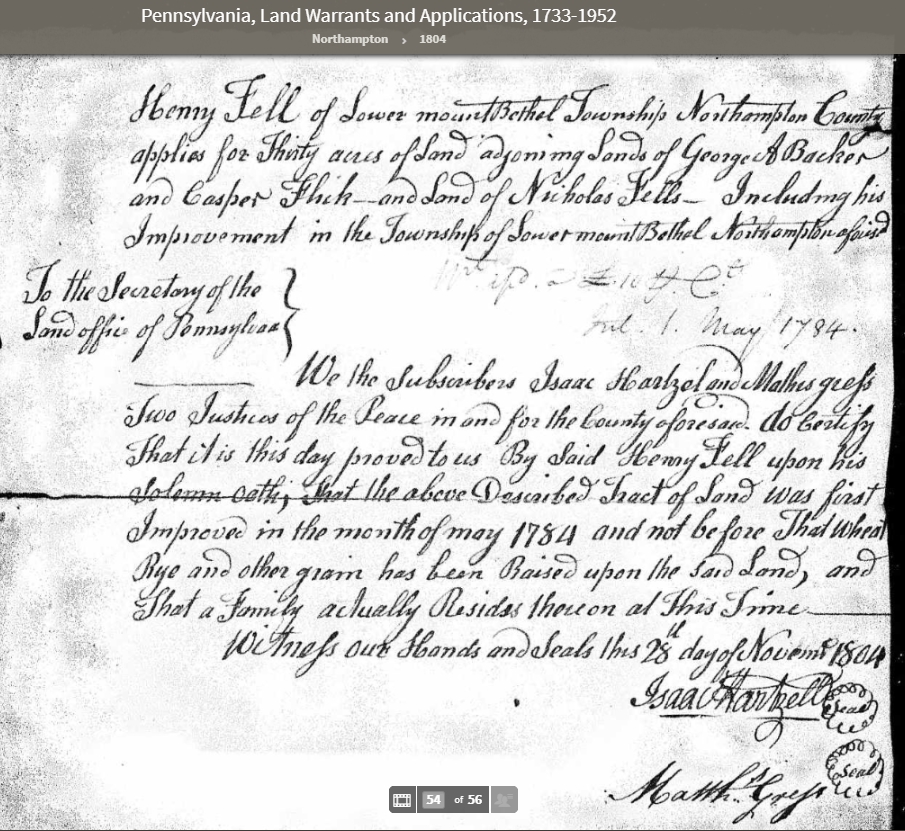 Pennsylvania, Land Warrants and Applications, 1733-1952
Northampton › 1804
Henry Fell of Lower mountBethel Township Northampton County
applies for Thirty acres of Land adjoining Lands of George A Backer
and Casper Flick—and Land of Nicholas Fells— Including his
Improvement in the Township of Lower mount Bethel Northampton aforisd
To the Secretary of the
Land office of Pennsylvaa
Int. 1. May 1784.
We the Subscribers Isaac Hartzel and Mathis gress
Two Justices of the Peace in and for the County aforesaid. do Certify
That it is this day proved to us By Said Henry Fell upon his
Solemn oath; that the above Described Tract of Land was first
Improved in the month of may 1784 and not before That Wheat
Rye and other grain has been Raised upon the said Land, and
That a Family actually Resides thereon at This Time
Witness our Hands and Seals this 28th day of Novemr 1804
Isaac Hartzell Seal
Matths. Gress Seal
54 of 56